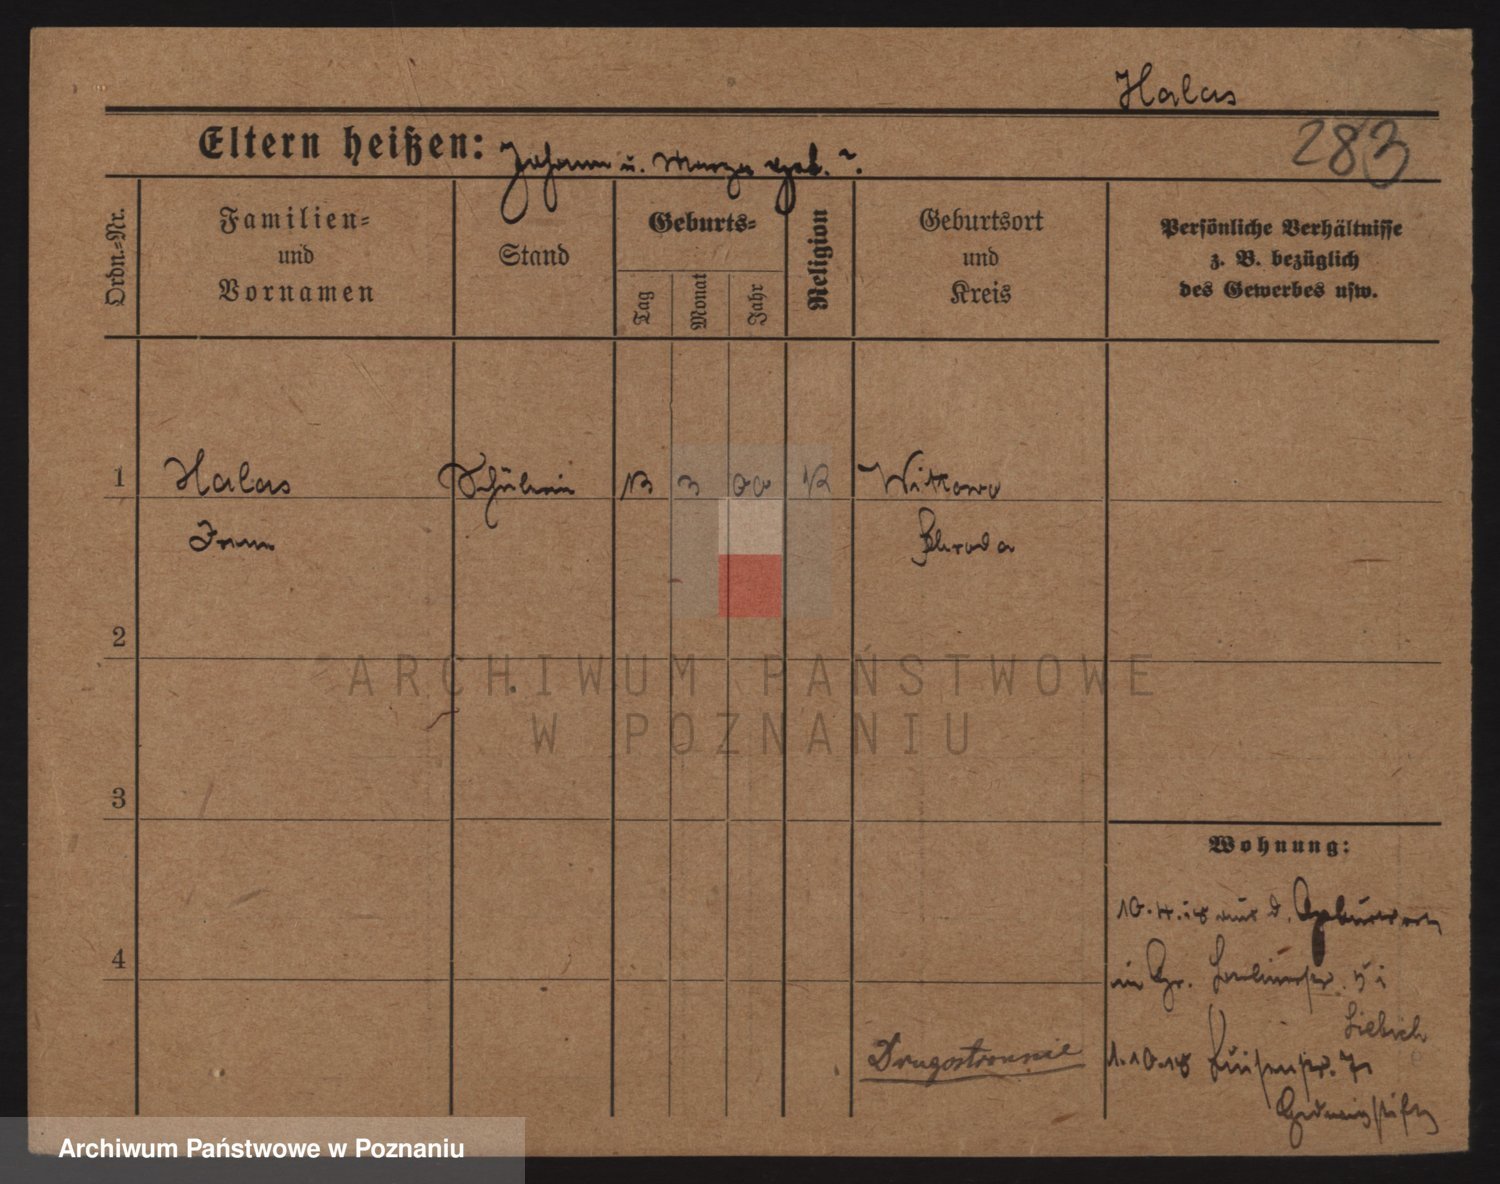 Halas
283
Eltern heißen: Johann u. Marya geb. ?.
Ordn.-Nr.
Familien-
und
Vornamen
Stand
Geburts-
Tag
Monat
Jahr
Religion
Geburtsort
und
Kreis
Persönliche Verhältnisse
z. B. bezüglich
des Gewerbes usw.
1 Halas Schülerin 13 3 00 K Wittowo
Irene Schroda
2
ARCHIWUM PAŃSTWOWE
W POZNANIU
3
Wohnung:
10.4.18 aus d. Geburtsort
4
in Gr. 5 I
Liebich
Drugostronnie
1.10.18 Luisenstr. 7
Archiwum Państwowe w Poznaniu